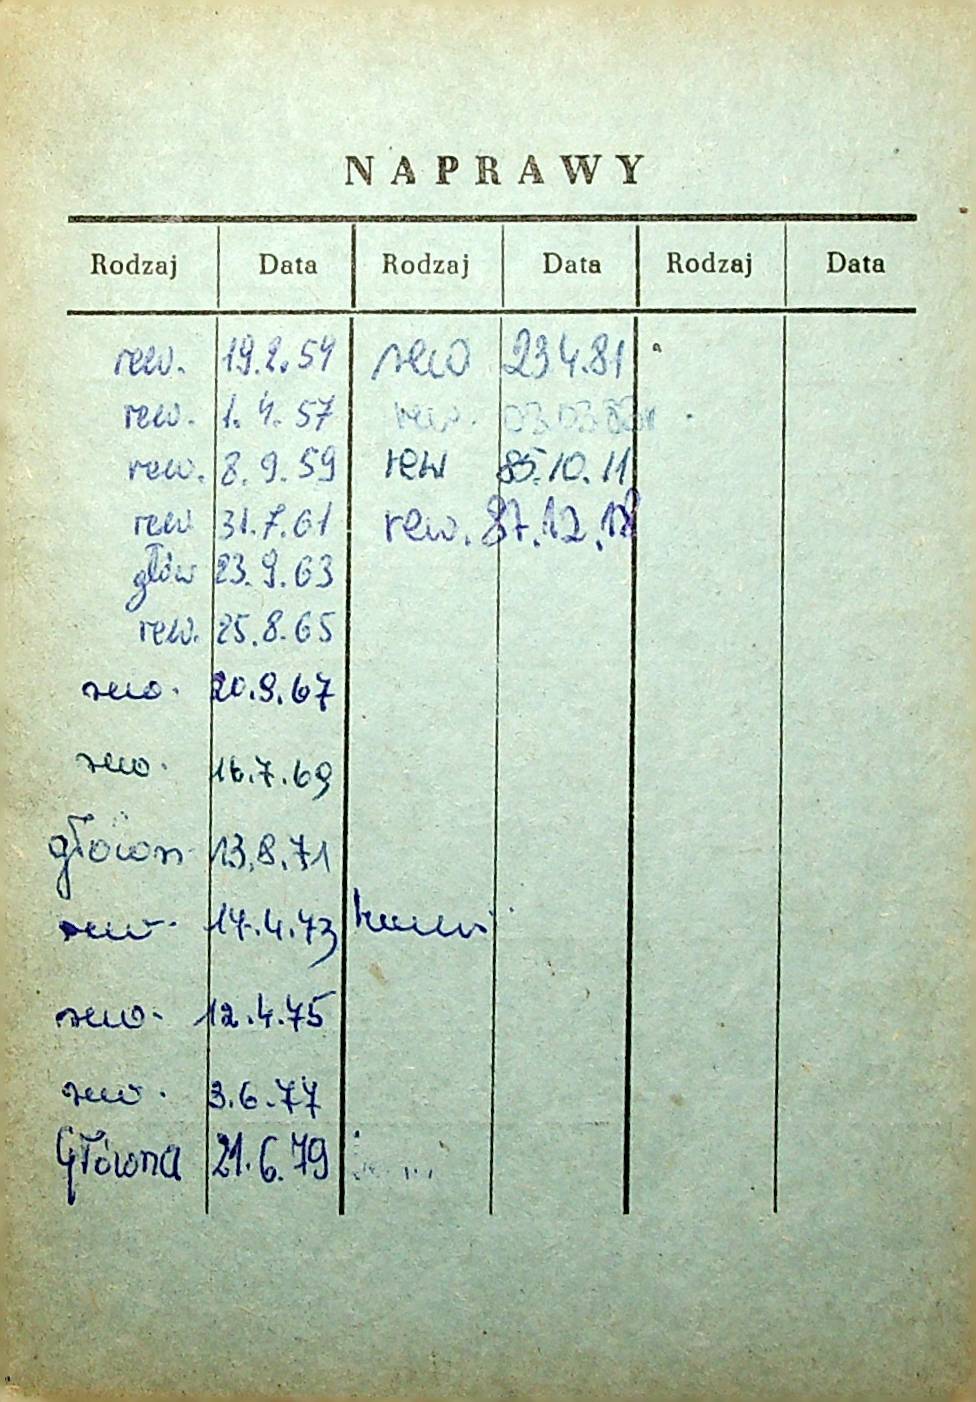 NAPRAWY
Rodzaj Data Rodzaj Data Rodzaj Data
rew. 19.2.54 rew 23 4.81
rew. 1. 4. 57 rew. 03 03 83r.
rew. 8. 9. 59 rew 85.10.11
rew 31.7.61 rew. 87.12.18
głów 23. 9. 63
rew. 25. 8. 65
rew. 20.9.67
rew. 16.7.69
główn 13.8.71
rew. 17.4.73
rew. 12.4.75
rew. 3.6.77
Główna 21.6.79